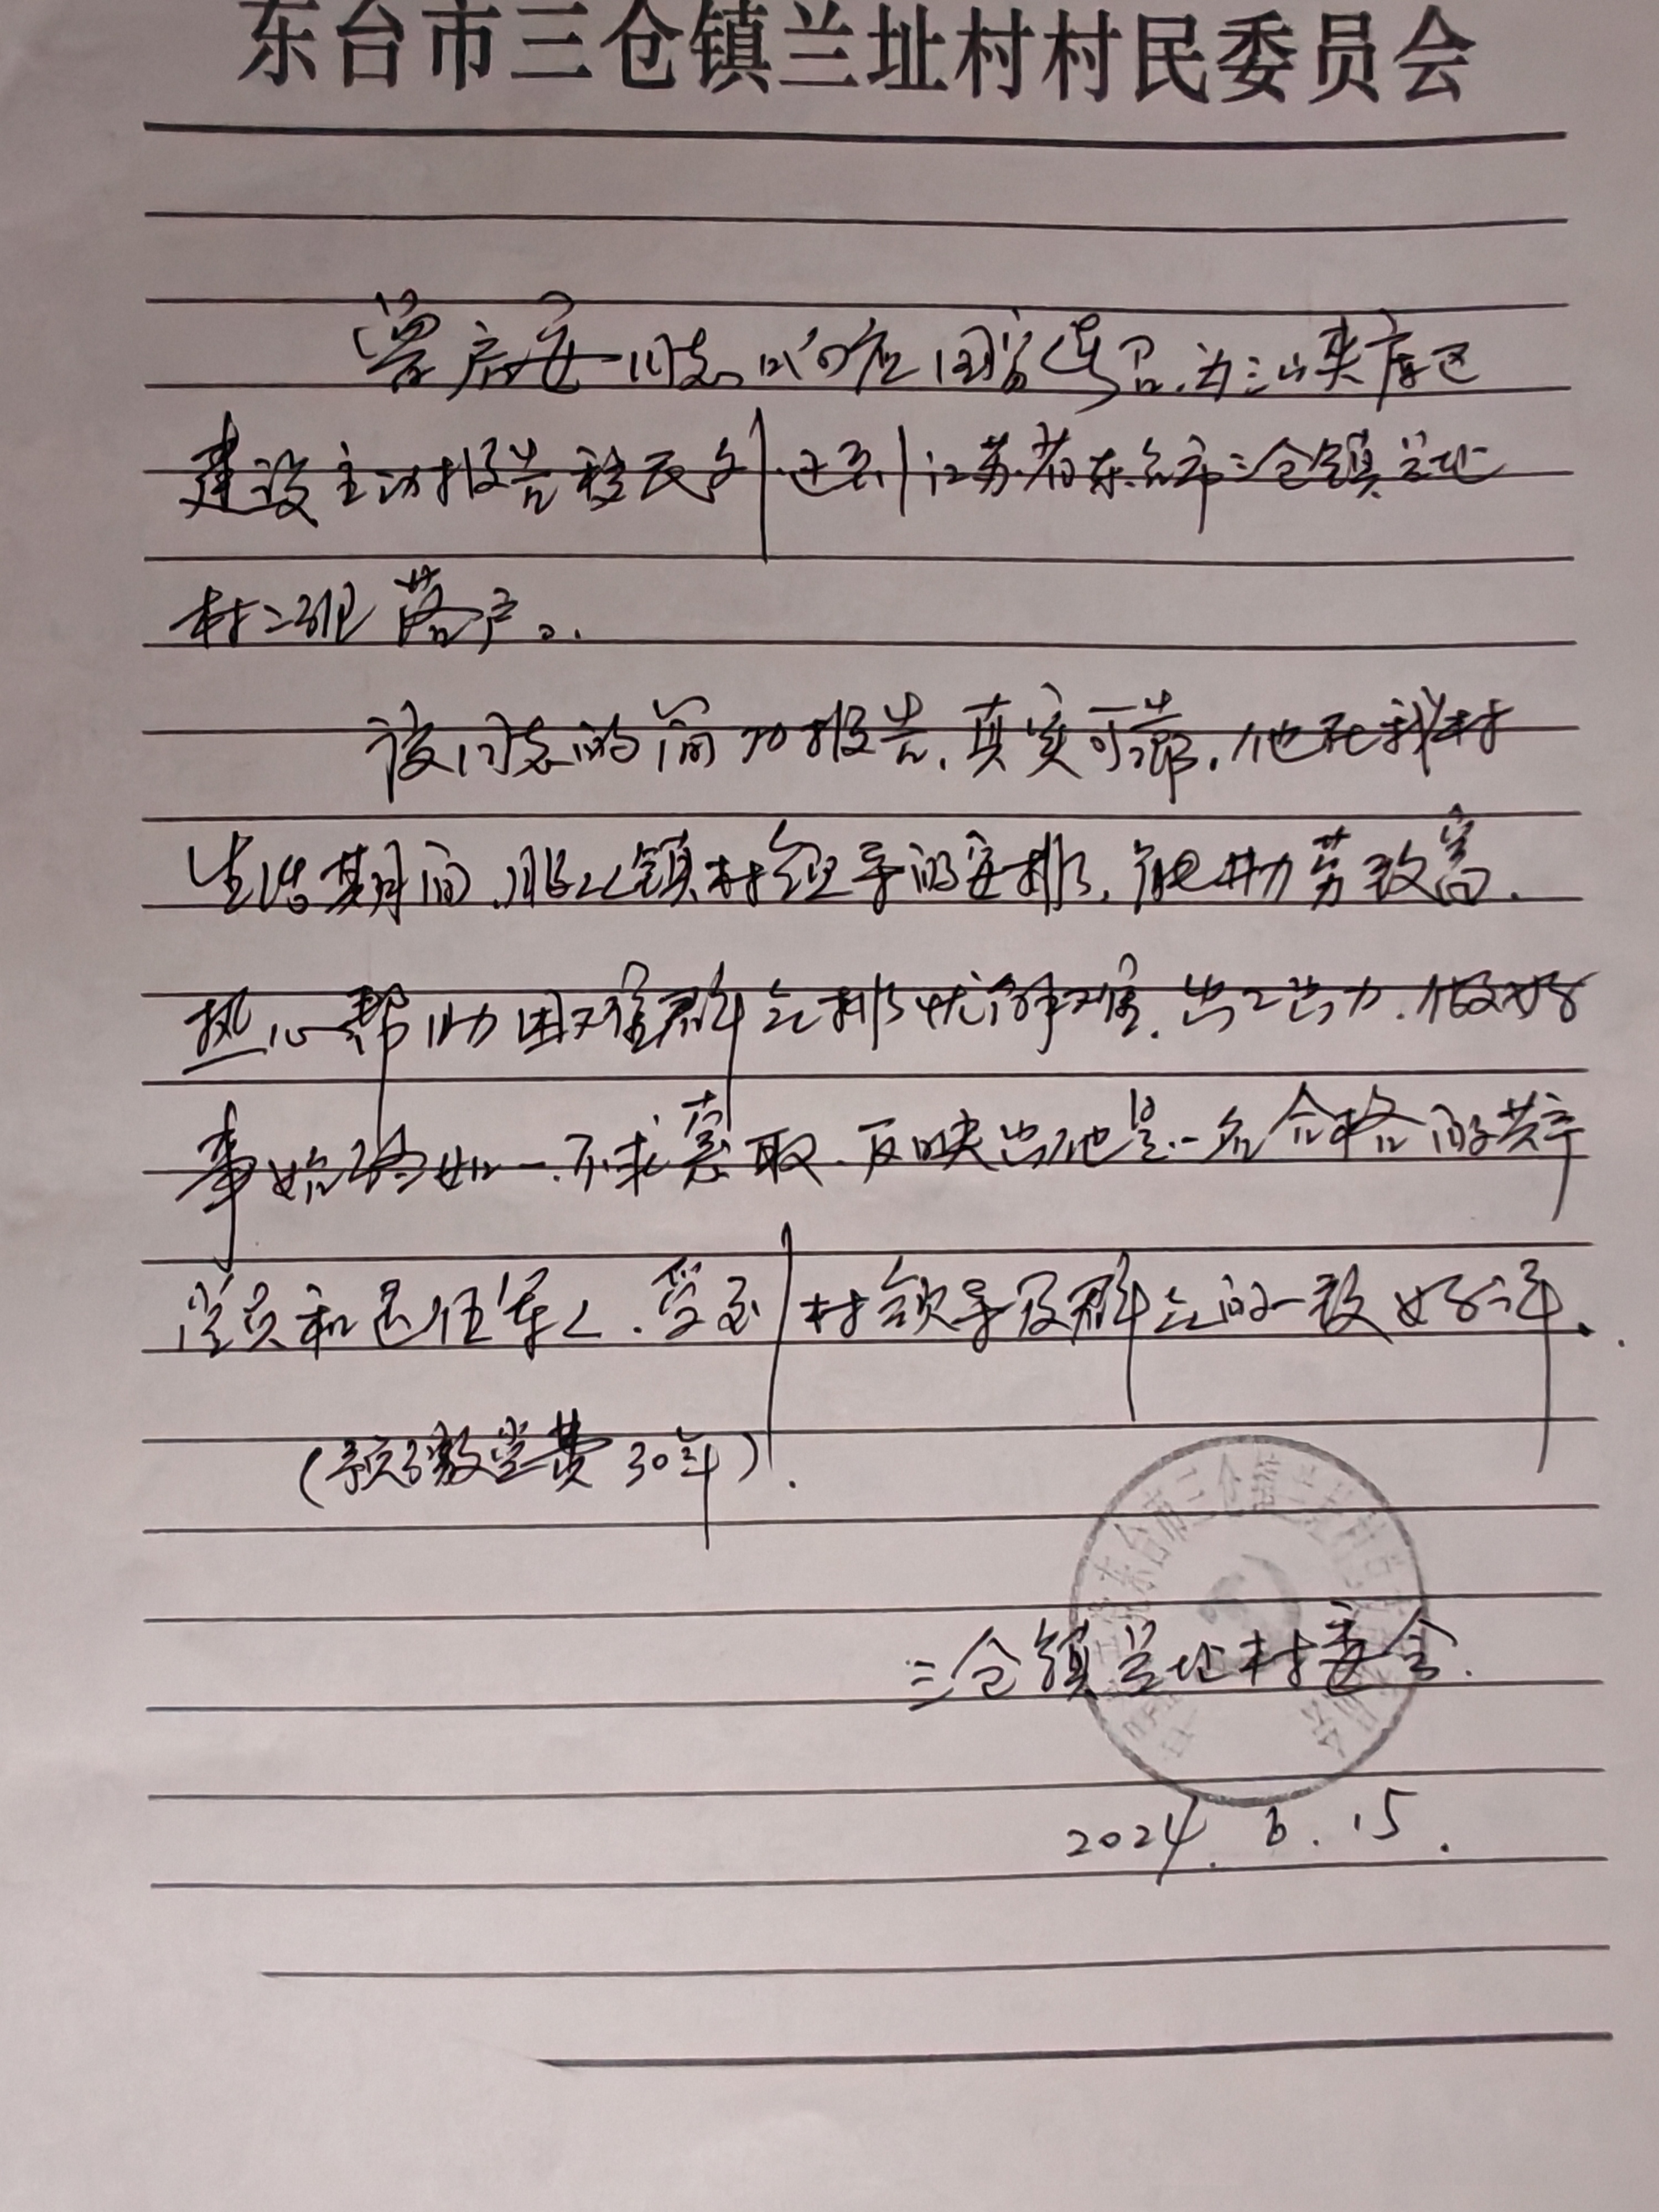 东台市三仓镇兰址村村民委员会
同志响应国家号召,为三峡库区
建设主动报告移民外迁到江苏省东台市三仓镇兰址
村二组落户。
该同志的简切报告,真实可靠,他在我村
生活期间,服从镇村领导的安排,能勤劳致富,
热心帮助困难群众排忧解难,出工出力,做好
事始终如一,不求索取,反映出他是一名合格的共产
党员和退伍军人,受到村领导及群众的一致好评。
(预缴党费30年).
三仓镇兰址村委会.
2024.6.15.